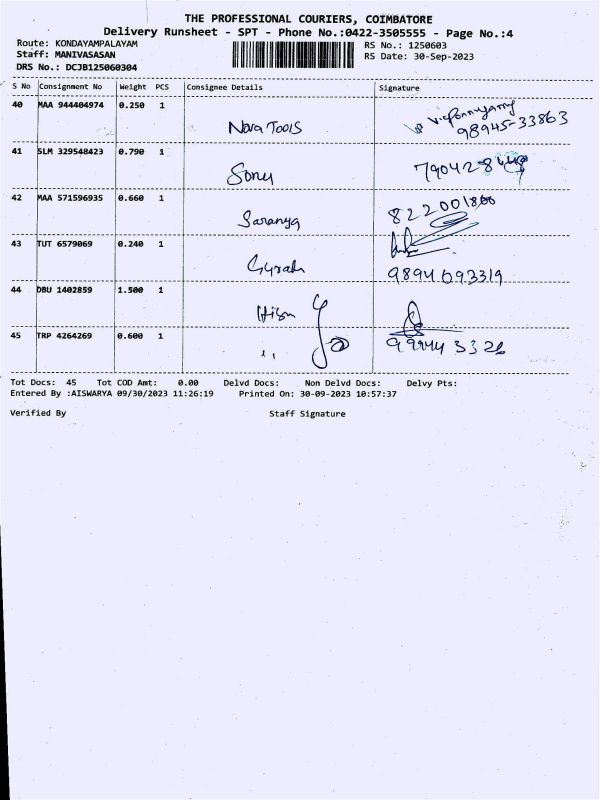 THE PROFESSIONAL COURIERS, COIMBATORE
Delivery Runsheet - SPT - Phone No.:0422-3505555 - Page No.:4
Route: KONDAYAMPALAYAM
Staff: MANIVASASAN
DRS No.: DCJB125060304
RS No.: 1250603
RS Date: 30-Sep-2023
S No Consignment No Weight PCS Consignee Details Signature
40 MAA 944404974 0.250 1
Nava Tools
98945-33863
41 SLM 329548423 0.790 1
Sony
790428
42 MAA 571596935 0.660 1
Saranya
43 TUT 6579069 0.240 1
9894693319
44 DBU 1402859 1.500 1
45 TRP 4264269 0.600 1
Tot Docs: 45 Tot COD Amt: 0.00 Delvd Docs: Non Delvd Docs: Delvy Pts:
Entered By :AISWARYA 09/30/2023 11:26:19 Printed On: 30-09-2023 10:57:37
Verified By Staff Signature